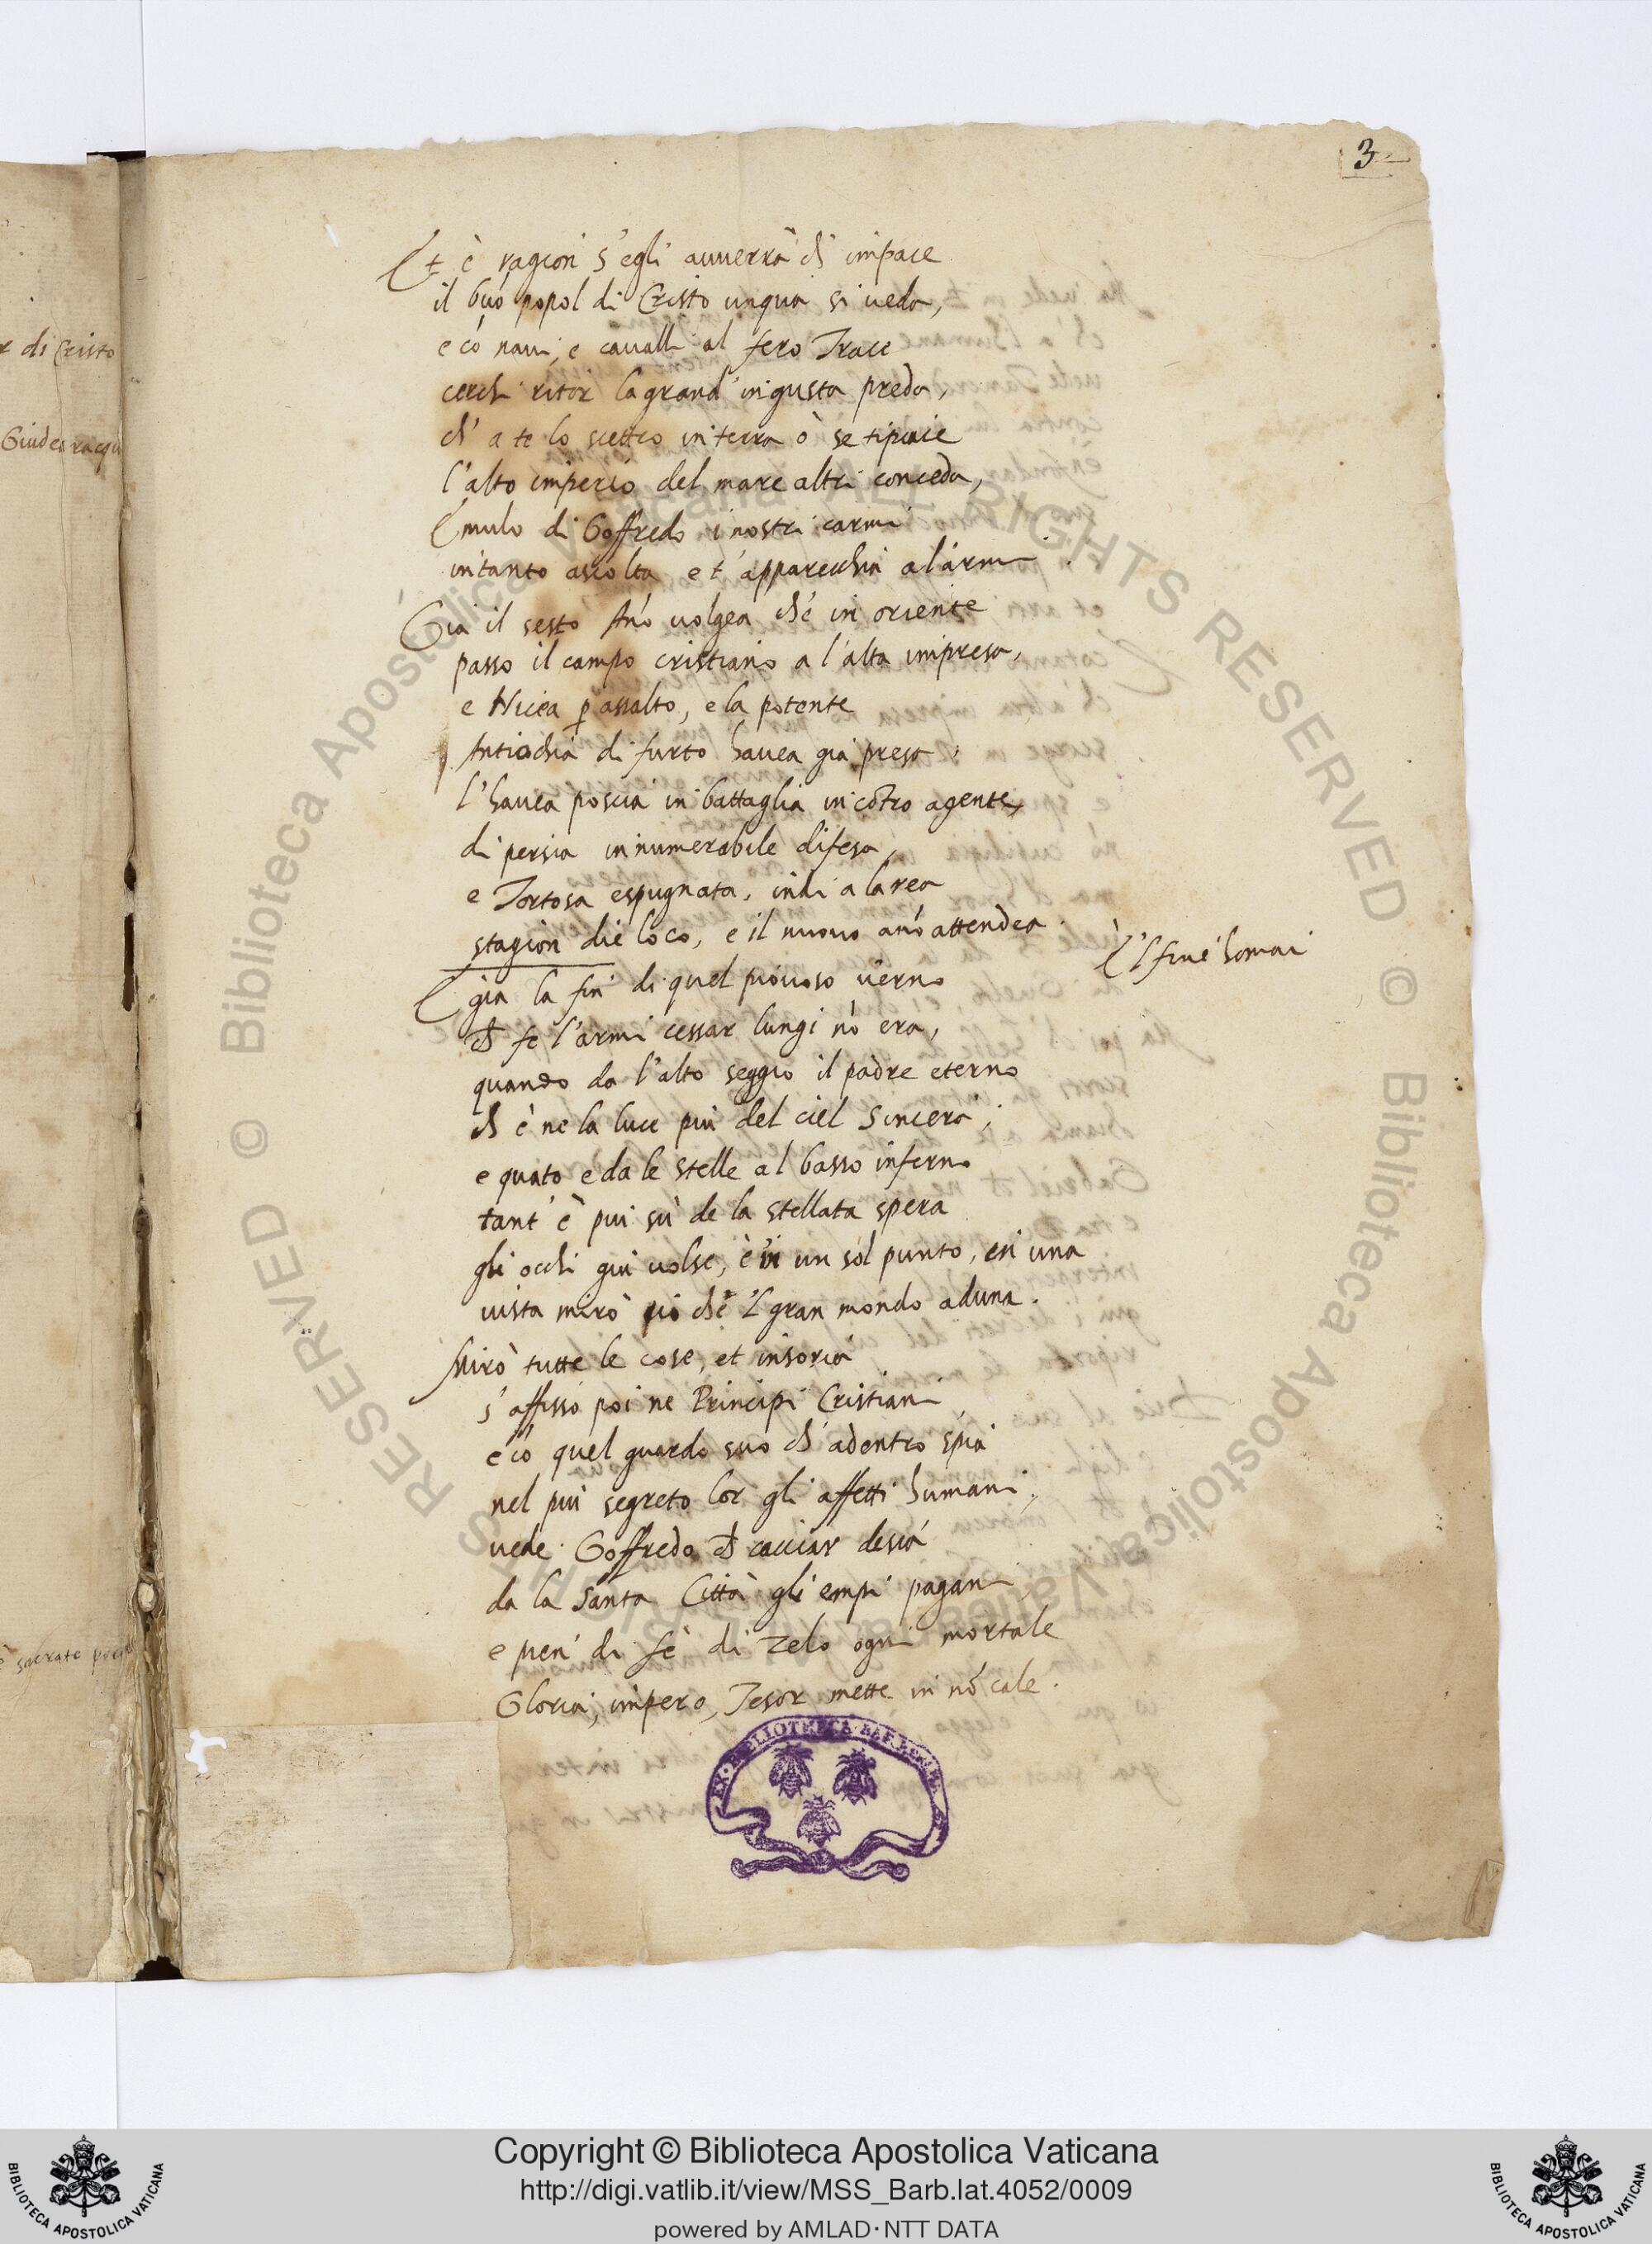 3
r di Cristo
Giudea racqu
è sacrate
Et è ragion s'egli auuerrà ch' inpace
il buõ popol di Cristo unqua si ueda,
e cõ naui, e caualli al fero Trace
cerchi ritor la grand' ingiusta preda,
ch' a te lo scettro interra ò se tipiace
l'alto imperio del mare altri conceda,
Emulo di Goffredo i nostri carmi
intanto ascolta e t'apparecchia al'armi.
Gia il sesto Anõ uolgea ch'è in oriente
passo il campo cristiano a l'alta impresa,
e Nicea p assalto, e la potente
Antiochia di furto hauea già presa:
l'hauea poscia in battaglia incõtro agente,
di persia innumerabile difesa,
e Tortosa espugnata, indi a la rea
stagion diè loco, e il nuouo anõ attendea.
E'l fine homai
E gia la fin di quel piouoso uerno
ch fe l'armi cessar lungi nõ era,
quando da l'alto seggio il padre eterno
ch è ne la luce più del ciel sincera;
e quãto e da le stelle al basso inferno
tant' è piu sù de la stellata spera
gli occhi giu uolse, e in un sol punto, en una
uista mirò ciò chẽ 'l gran mondo aduna.
Mirò tutte le cose, et insoria
s'affissò poi ne Principi Cristiani,
e cõ quel guardo suo ch' adentro spia
nel più segreto lor gli affetti humani;
uede Goffredo ch cacciar desia
da la santa Città gli empi pagani
e pien di fè di zelo ogni mortale
Gloria, impero, Tesor mette in nõ cale.
EX · BIBLIOTHECA · BARBERINA
© Biblioteca Apostolica Vaticana ALL RIGHTS RESERVED
© Biblioteca Apostolica Vaticana ALL RIGHTS RESERVED
Copyright © Biblioteca Apostolica Vaticana
http://digi.vatlib.it/view/MSS_Barb.lat.4052/0009
powered by AMLAD·NTT DATA
BIBLIOTECA APOSTOLICA VATICANA
BIBLIOTECA APOSTOLICA VATICANA